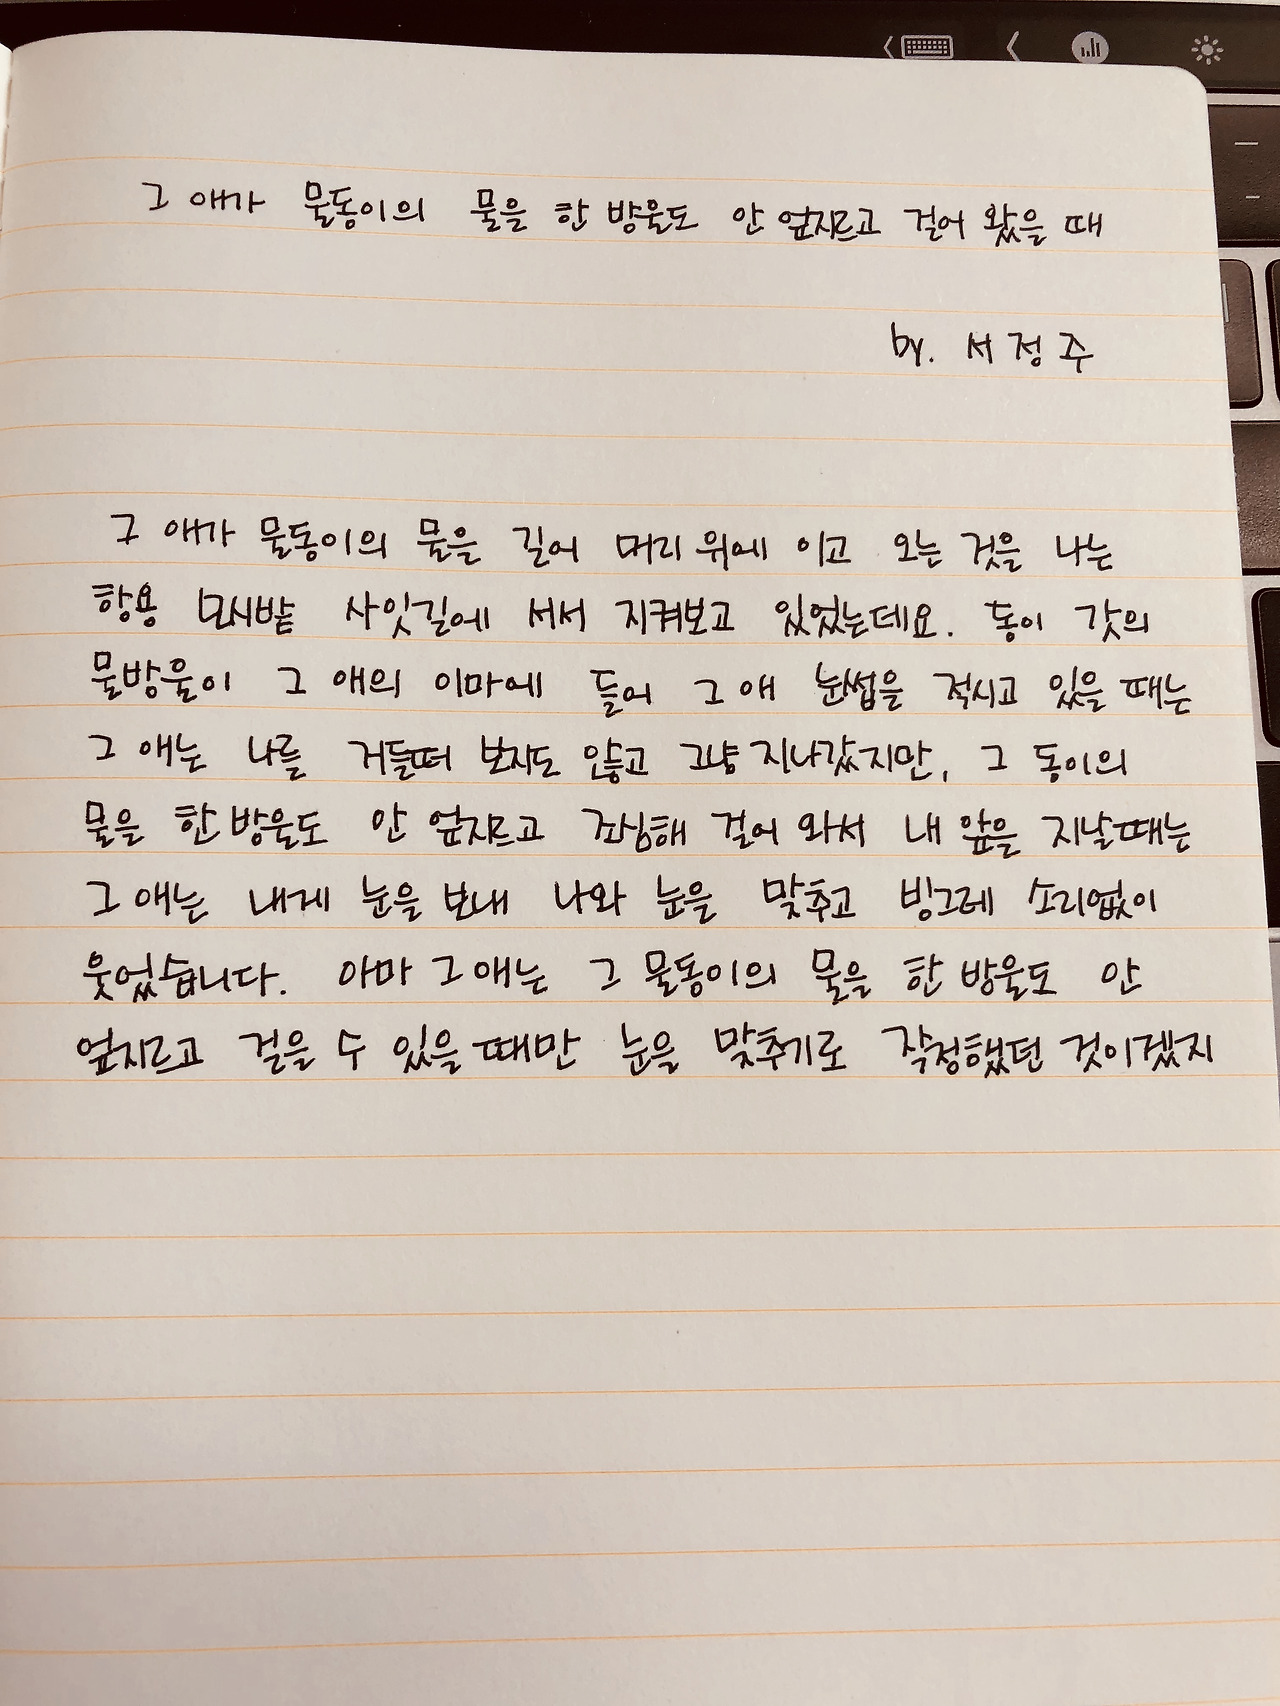 그 애가 물동이의 물을 한 방울도 안 엎지르고 걸어 왔을 때
by. 서정주
그 애가 물동이의 물을 길어 머리 위에 이고 오는 것을 나는
항용 모시밭 사잇길에 서서 지켜보고 있었는데요. 동이 갓의
물방울이 그 애의 이마에 들어 그 애 눈썹을 적시고 있을 때는
그 애는 나를 거들떠 보지도 않고 그냥 지나갔지만, 그 동이의
물을 한 방울도 안 엎지르고 조심해 걸어 와서 내 앞을 지날 때는
그 애는 내게 눈을 보내 나와 눈을 맞추고 빙그레 소리없이
웃었습니다. 아마 그 애는 그 물동이의 물을 한 방울도 안
엎지르고 걸을 수 있을 때만 눈을 맞추기로 작정했던 것이겠지